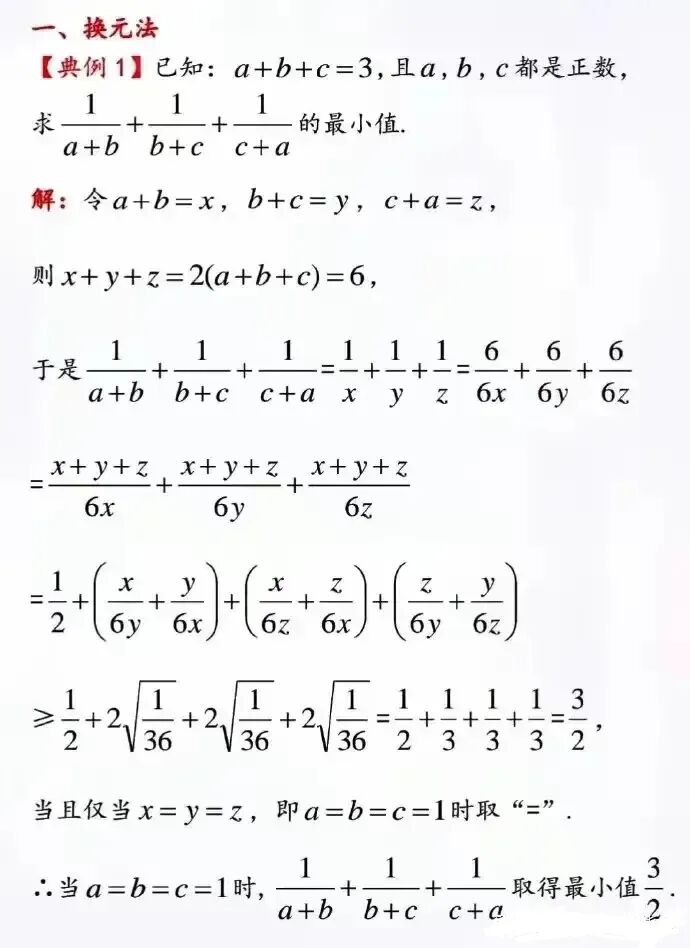 一、换元法
【典例1】已知：a+b+c=3,且a,b,c都是正数,
求 1/(a+b) + 1/(b+c) + 1/(c+a) 的最小值.
解：令a+b=x，b+c=y，c+a=z，
则x+y+z=2(a+b+c)=6，
于是 1/(a+b) + 1/(b+c) + 1/(c+a) = 1/x + 1/y + 1/z = 6/(6x) + 6/(6y) + 6/(6z)
= (x+y+z)/(6x) + (x+y+z)/(6y) + (x+y+z)/(6z)
= 1/2 + (x/(6y) + y/(6x)) + (x/(6z) + z/(6x)) + (z/(6y) + y/(6z))
≥ 1/2 + 2√(1/36) + 2√(1/36) + 2√(1/36) = 1/2 + 1/3 + 1/3 + 1/3 = 3/2，
当且仅当x=y=z，即a=b=c=1时取“=”.
∴当a=b=c=1时, 1/(a+b) + 1/(b+c) + 1/(c+a) 取得最小值 3/2.